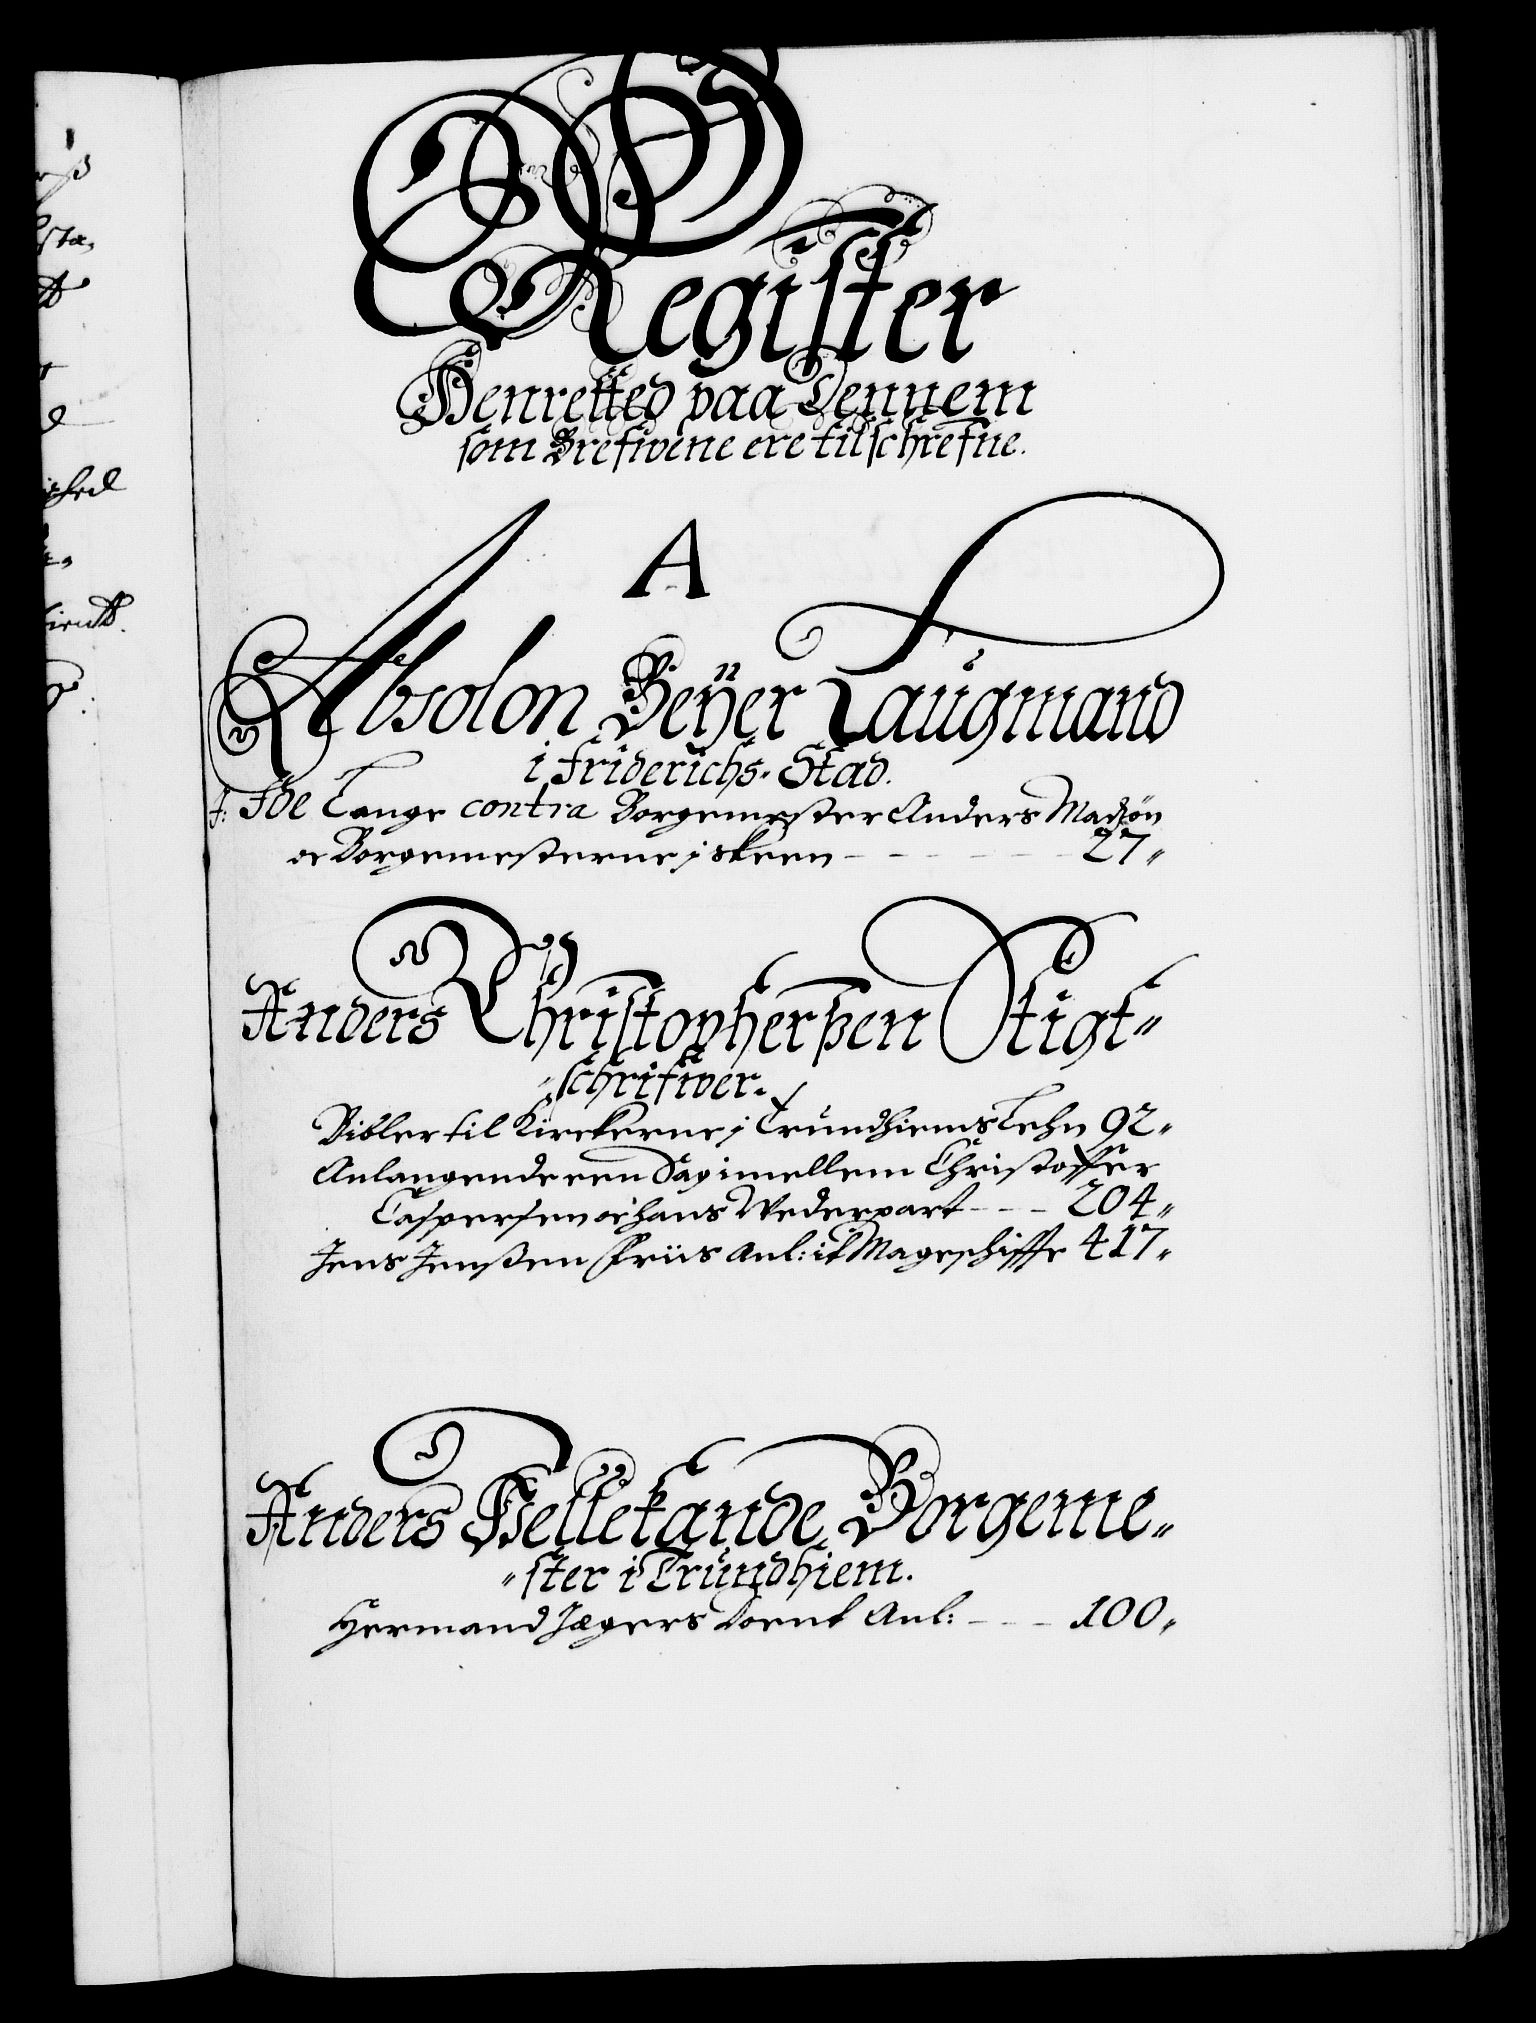 Register
Henretted paa Dennem
som Brefwene ere tilschrefne.
A
Absolon Beÿer Laugmand
i Friderichs-Stad.
F: Ide Lange contra Borgemester Anders Madsøn
oc Borgemesterne i Skeen - - - - - 27"
Anders Christopherßen Stigt"
"schrifwer.
Bibler til Kirckerne i Trundhiems Lehn 92"
Anlangende een Sag imellem Christoffer
Caspersen oc hans Wederpart - - - 204"
Jens Jenßen Friis Anl: it Mageschiffte 417"
Anders Hellekande Borgeme"
"ster i Trundhiem.
Hermand Jægers Boent Anl: - - - 100"